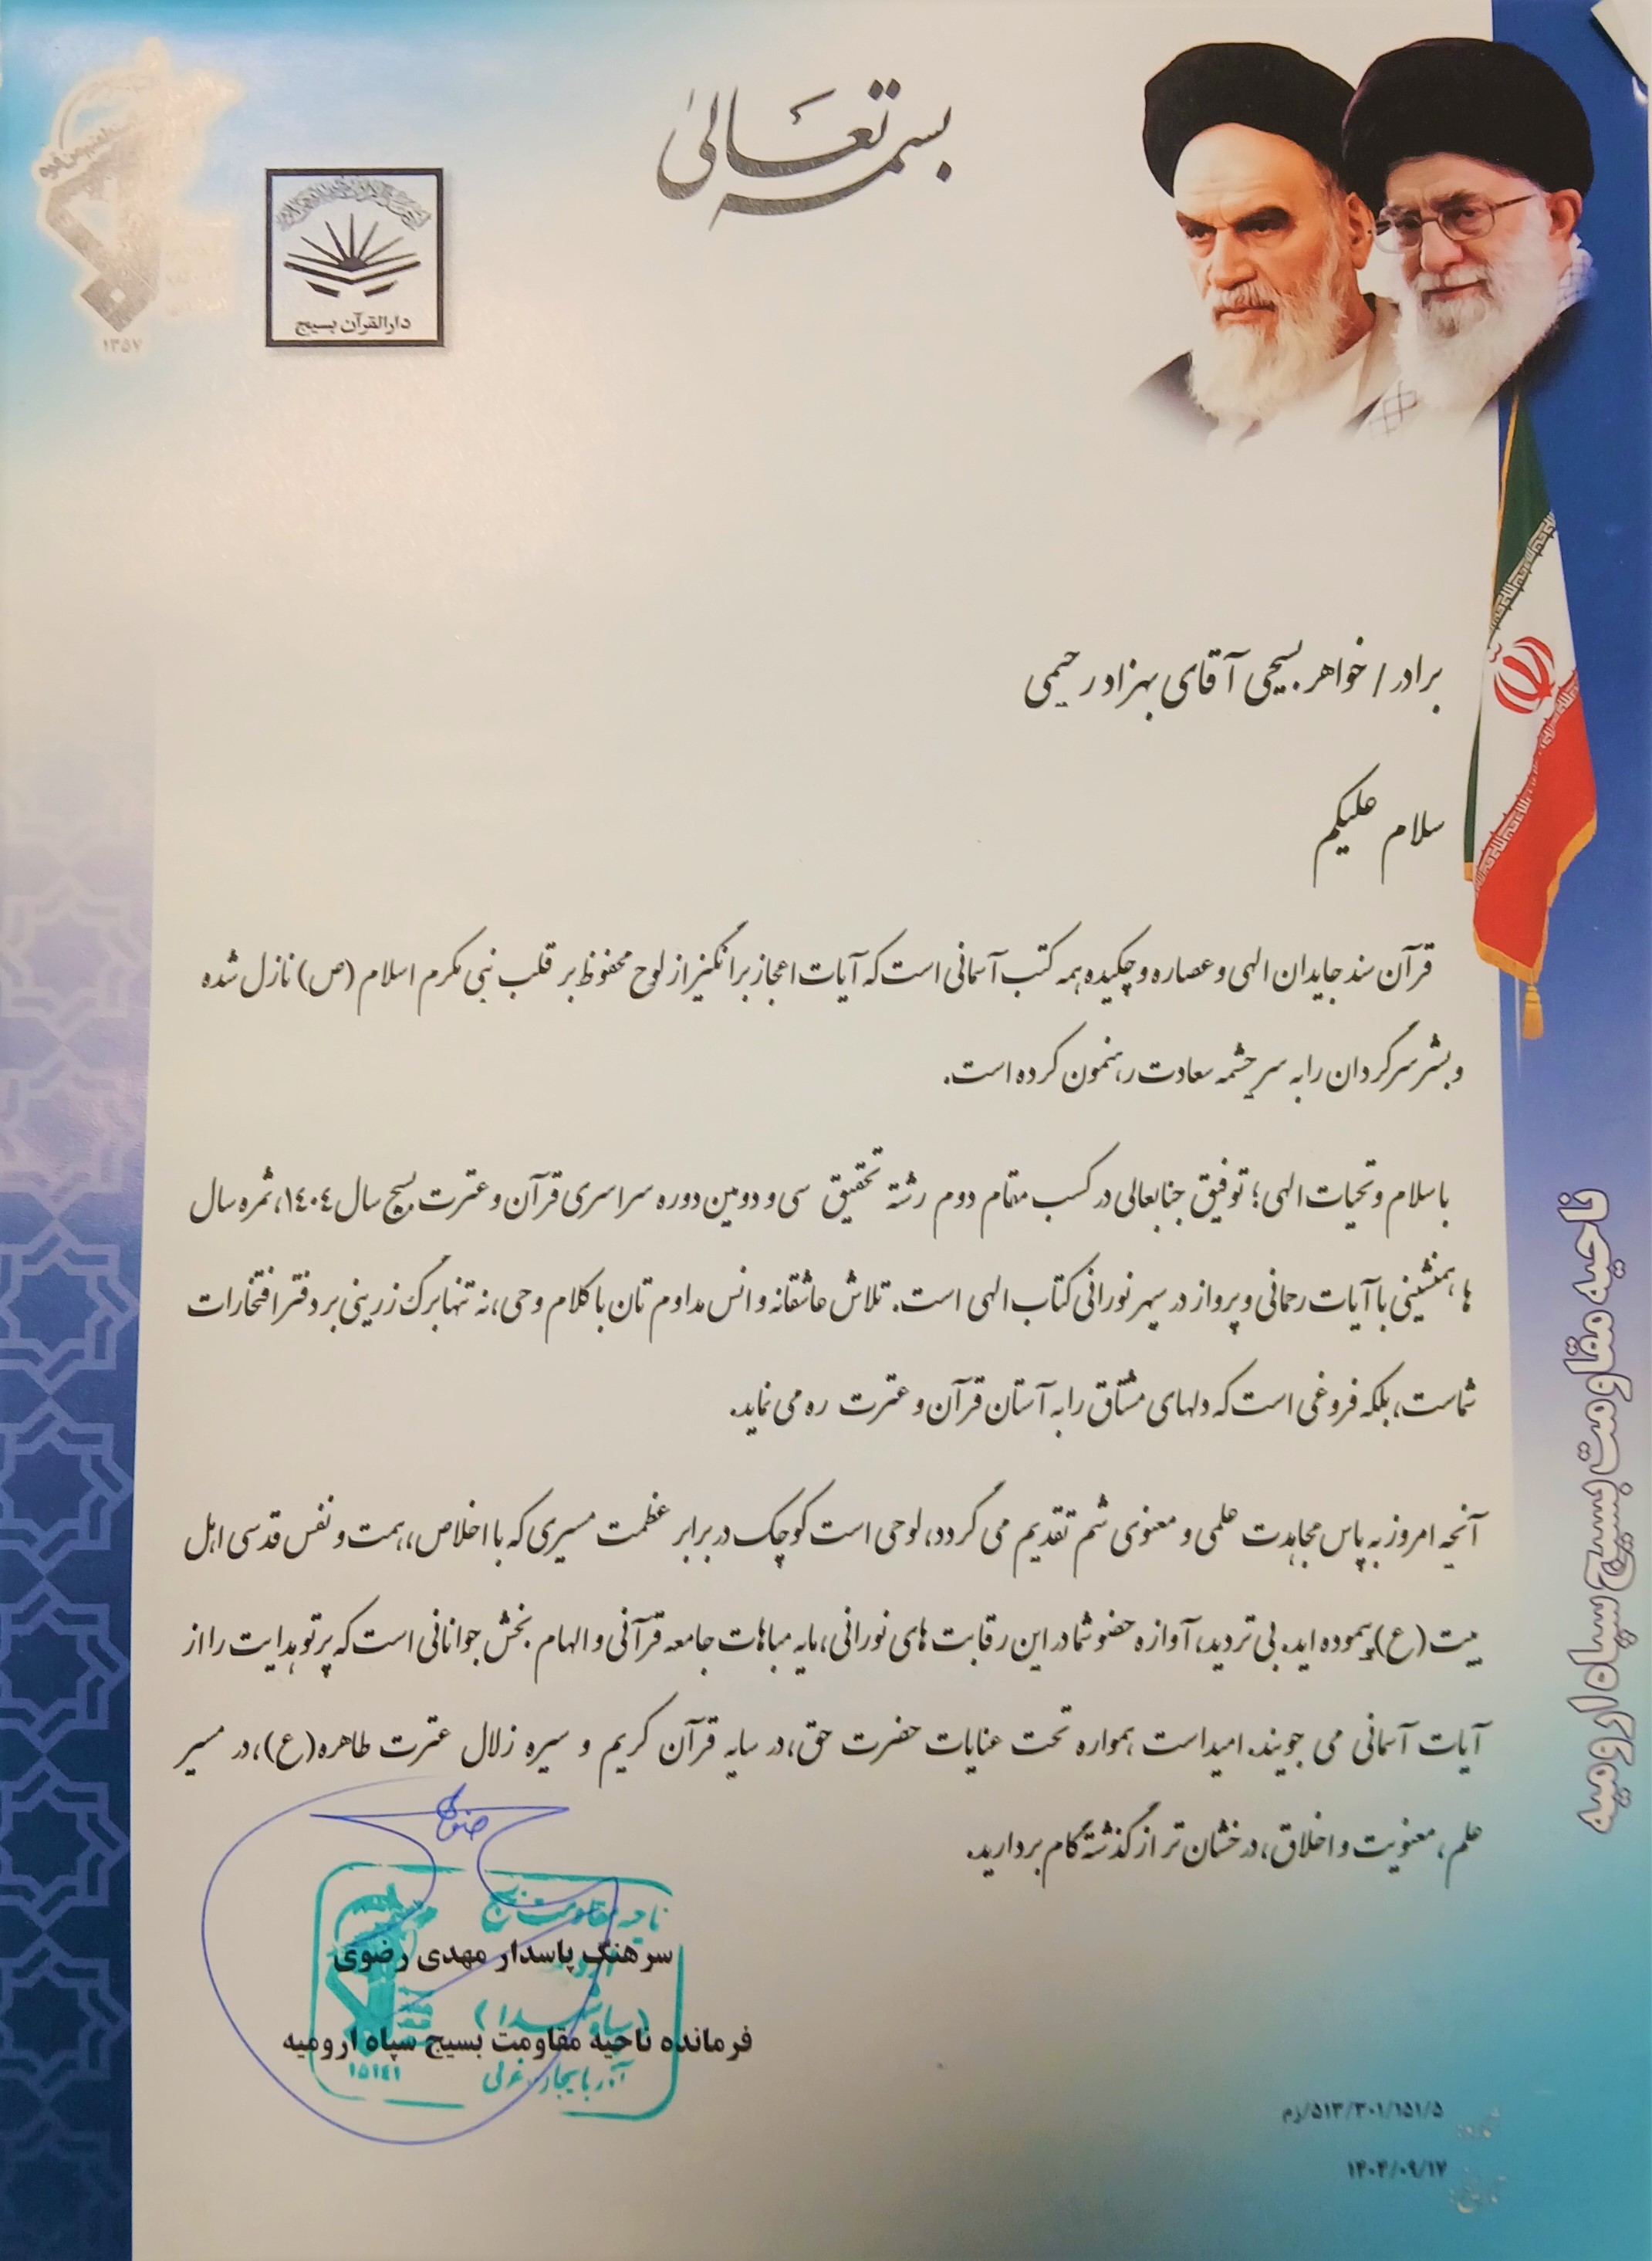 بسمه تعالی
دارالقرآن بسیج
۱۳۵۷
برادر / خواهر بسیجی آقای بهزاد رحیمی
سلام علیکم
قرآن سند جایدان الهی و عصاره و چکیده همه کتب آسمانی است که آیات اعجاز برانگیز از لوح محفوظ بر قلب نبی مکرم اسلام (ص) نازل شده
و بشر سرگردان را به سرچشمه سعادت رهنمون کرده است.
با سلام و تحیات الهی؛ توفیق جنابعالی در کسب مقام دوم رشته تحقیق سی و دومین دوره سراسری قرآن و عترت بسیج سال ١٤٠٤، ثمره سال
ها، همنشینی با آیات رحمانی و پرواز در سپهر نورانی کتاب الهی است. تلاش عاشقانه و انس مداوم تان با کلام وحی، نه تنها برگ زرینی بر دفتر افتخارات
شماست، بلکه فروغی است که دلهای مشتاق را به آستان قرآن و عترت ره می نماید.
آنچه امروز به پاس مجاهدت علمی و معنوی شم تقدیم می گردد، لوحی است کوچک در برابر عظمت مسیری که با اخلاص، همت و نفس قدسی اهل
بیت (ع) پیموده اید. بی تردید، آوازه حضو شما در این رقابت های نورانی، مایه مباهات جامعه قرآنی و الهام بخش جوانانی است که پرتو هدایت را از
آیات آسمانی می جویند. امید است همواره تحت عنایات حضرت حق، در سایه قرآن کریم و سیره زلال عترت طاهره (ع)، در مسیر
علم، معنویت و اخلاق، درخشان تر از گذشته گام بردارید.
سرهنگ پاسدار مهدی رضوی
فرمانده ناحیه مقاومت بسیج سپاه ارومیه
ناحیه مقاومت بسیج
آذربایجان غربی
۱۵۱۴۱
ناحیه مقاومت بسیج سپاه ارومیه
۵/۱۵۱/۳۰۱/۵۱۳/م
تاریخ: ۱۴۰۴/۰۹/۱۷